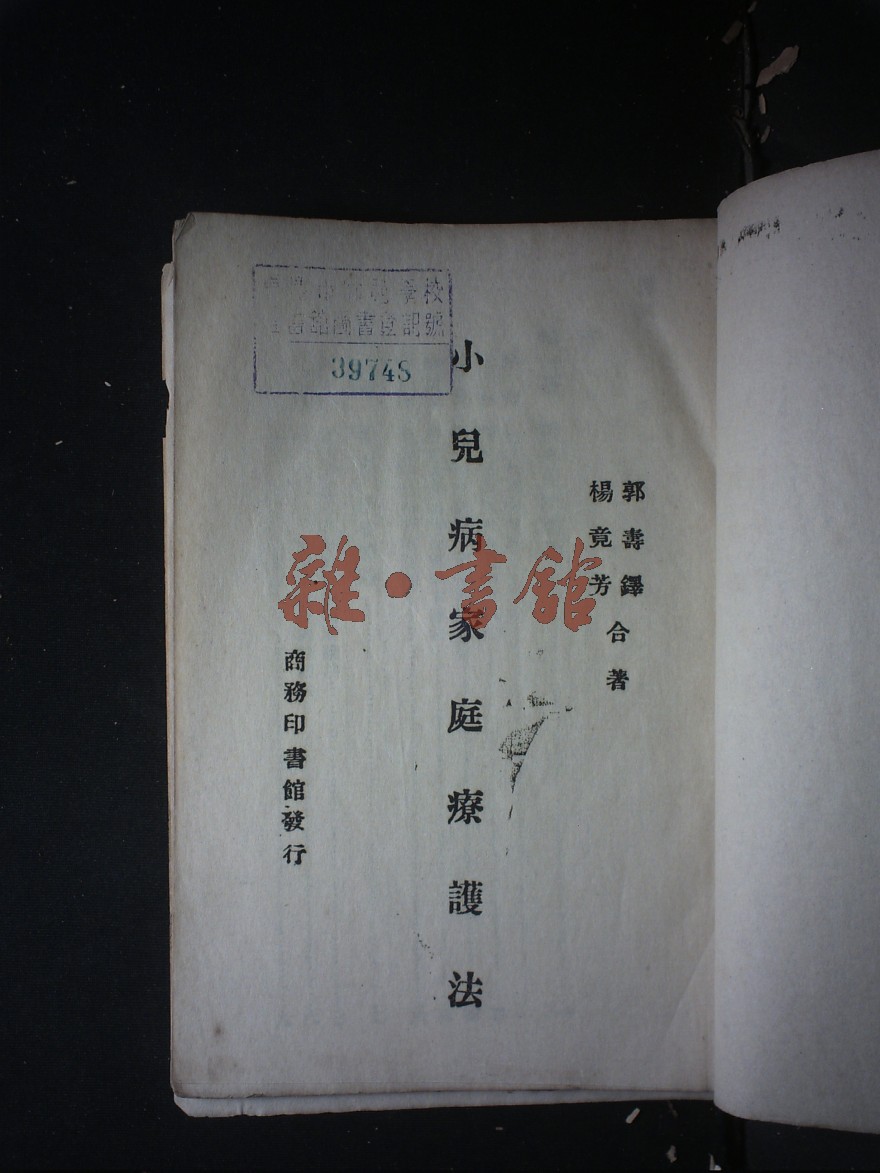 郭壽鐸
楊竟芳
合著
小兒病家庭療護法
商務印書館發行
校
館圖書登記號
39748
雜·書館